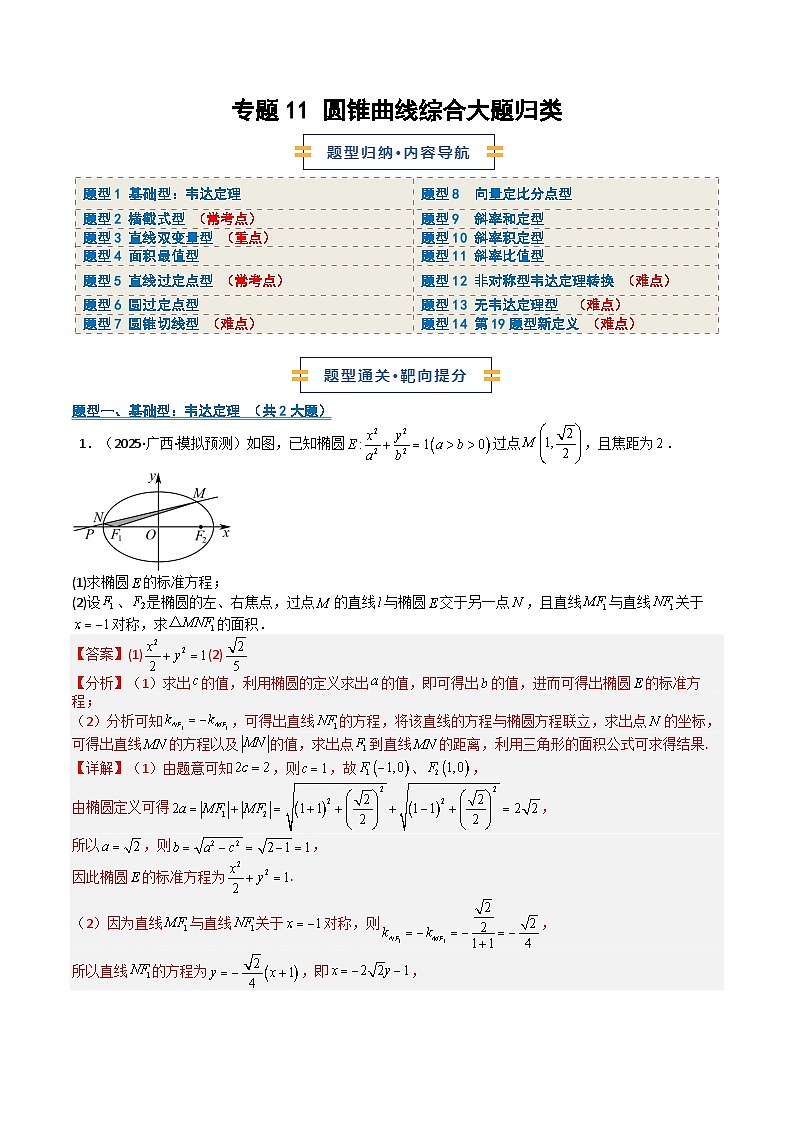 专题 11 圆锥曲线综合大题归类
题型归纳·内容导航
题型 1 基础型：韦达定理
题型 8 向量定比分点型
题型 2 横截式型 （常考点）
题型 9 斜率和定型
题型 3 直线双变量型 （重点）
题型 10 斜率积定型
题型 4 面积最值型
题型 11 斜率比值型
题型 5 直线过定点型 （常考点）
题型 12 非对称型韦达定理转换 （难点）
题型 6 圆过定点型
题型 13 无韦达定理型 （难点）
题型 7 圆锥切线型 （难点）
题型 14 第 19 题型新定义 （难点）
题型通关·靶向提分
题型一、基础型：韦达定理 （共 2 大题）
1．（2025·广西·模拟预测）如图，已知椭圆 E : x²/a² + y²/b² = 1(a > b > 0) 过点 M(1, √2/2)，且焦距为 2．
y
M
N
P F₁ O F₂ x
(1)求椭圆 E 的标准方程；
(2)设 F₁、F₂是椭圆的左、右焦点，过点 M 的直线 l 与椭圆 E 交于另一点 N，且直线 MF₁ 与直线 NF₁ 关于
x = −1 对称，求 △MNF₁ 的面积．
【答案】(1) x²/2 + y² = 1 (2) √2/5
【分析】（1）求出 c 的值，利用椭圆的定义求出 a 的值，即可得出 b 的值，进而可得出椭圆 E 的标准方
程；
（2）分析可知 k_{NF₁} = −k_{MF₁}，可得出直线 NF₁ 的方程，将该直线的方程与椭圆方程联立，求出点 N 的坐标，
可得出直线 MN 的方程以及 |MN| 的值，求出点 F₁ 到直线 MN 的距离，利用三角形的面积公式可求得结果.
【详解】（1）由题意可知 2c = 2，则 c = 1，故 F₁(−1,0)、F₂(1,0)，
由椭圆定义可得 2a = |MF₁| + |MF₂| = √((1+1)² + (√2/2)²) + √((1−1)² + (√2/2)²) = 2√2，
所以 a = √2，则 b = √(a² − c²) = √(2−1) = 1，
因此椭圆 E 的标准方程为 x²/2 + y² = 1.
（2）因为直线 MF₁ 与直线 NF₁ 关于 x = −1 对称，则 k_{NF₁} = −k_{MF₁} = −(√2/2)/(1+1) = −√2/4，
所以直线 NF₁ 的方程为 y = −√2/4 (x+1)，即 x = −2√2y − 1，